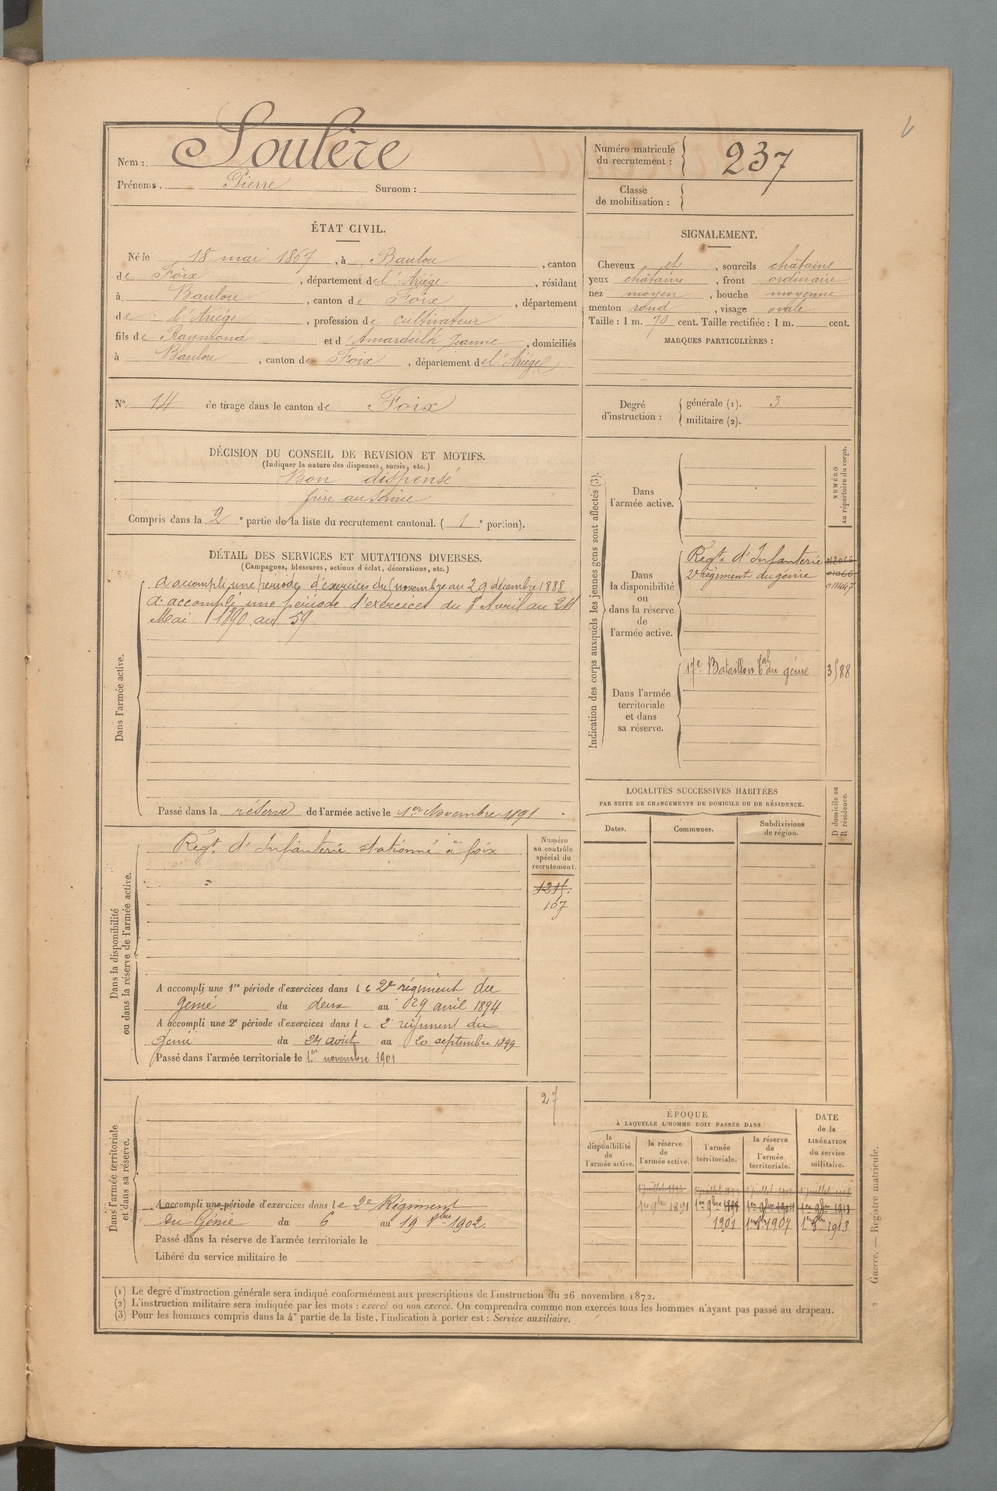 Nom : Soulère
Prénoms. Pierre Surnom :
Numéro matricule du recrutement : 237
Classe de mobilisation :
ÉTAT CIVIL.
Né le 18 mai 1867, à Baulou, canton
de Foix, département de l'Ariège, résidant
à Baulou, canton de Foix, département
de l'Ariège, profession de cultivateur
fils de Raymond et d'Amardeilh Jeanne, domiciliés
à Baulou, canton de Foix, département de l'Ariège
N° 14 de tirage dans le canton de Foix
SIGNALEMENT.
Cheveux et, sourcils châtains
yeux châtains, front ordinaire
nez moyen, bouche moyenne
menton rond, visage ovale
Taille : 1 m. 70 cent. Taille rectifiée : 1 m. cent.
MARQUES PARTICULIÈRES :
Degré d'instruction : générale (1). 3
militaire (2).
DÉCISION DU CONSEIL DE REVISION ET MOTIFS.
(Indiquer la nature des dispenses, sursis, etc.)
Bon dispensé
frère au service
Compris dans la 2e partie de la liste du recrutement cantonal. ( 1e portion).
DÉTAIL DES SERVICES ET MUTATIONS DIVERSES.
(Campagnes, blessures, actions d'éclat, décorations, etc.)
Dans l'armée active.
A accompli une période d'exercice du 1 novembre au 29 décembre 1888
A accompli une période d'exercices du 8 Avril au
Mai 1890 au 59
Passé dans la réserve de l'armée active le 1er Novembre 1891
Dans la disponibilité
ou dans la réserve de l'armée active.
Régt d'Infanterie stationné à foix
Numéro
au contrôle
spécial du
recrutement.
1215
107
A accompli une 1re période d'exercices dans le 2e régiment du
Génie du deux au 29 avril 1894
A accompli une 2e période d'exercices dans le 2 régiment du
génie du 24 août au 20 septembre 1899
Passé dans l'armée territoriale le 1er novembre 1901
Dans l'armée territoriale
et dans sa réserve.
27
A accompli une période d'exercices dans le 2e Régiment
du Génie du 6 au 19 8bre 1902
Passé dans la réserve de l'armée territoriale le
Libéré du service militaire le
Indication des corps auxquels les jeunes gens sont affectés (3).
NUMÉRO
au répertoire du corps.
Dans
l'armée active.
Dans
la disponibilité
ou
dans la réserve
de
l'armée active.
Regt d'Infanterie
2e régiment du génie
Dans l'armée
territoriale
et dans
sa réserve.
17e Bataillon tal du génie
LOCALITÉS SUCCESSIVES HABITÉES
PAR SUITE DE CHANGEMENTS DE DOMICILE OU DE RÉSIDENCE.
Dates. Communes. Subdivisions de région.
D domicile ou
R résidence.
ÉPOQUE
À LAQUELLE L'HOMME DOIT PASSER DANS
la disponibilité de l'armée active.
la réserve de l'armée active.
l'armée territoriale.
la réserve de l'armée territoriale.
DATE
de la
LIBÉRATION
du service
militaire.
1er 9bre 1891
1901 1er 8bre 1907 1er 8bre 1913
Guerre. — Registre matricule.
(1) Le degré d'instruction générale sera indiqué conformément aux prescriptions de l'instruction du 26 novembre 1872.
(2) L'instruction militaire sera indiquée par les mots : exercé ou non exercé. On comprendra comme non exercés tous les hommes n'ayant pas passé au drapeau.
(3) Pour les hommes compris dans la 4e partie de la liste, l'indication à porter est : Service auxiliaire.